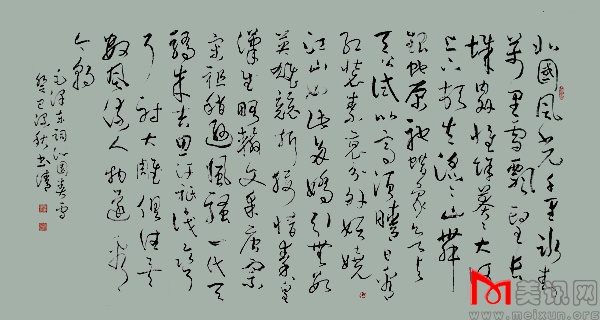 北國風光千里冰封
萬里雪飄望長
城內外惟餘莽莽大河
上下頓失滔滔山舞
銀蛇原馳蠟象欲与
天公試比高須晴日看
紅裝素裹分外妖嬈
江山如此多嬌引無數
英雄競折腰惜秦皇
漢武略輸文采唐宗
宋祖稍遜風騷一代天
驕成吉思汗只識彎
弓射大雕俱往矣
數風流人物還看
今朝
毛澤東詞沁園春雪
癸巳深秋
美讯网
www.meixun.org